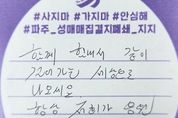 #사지마 #가지마 #안심해
#파주_성매매집결지폐쇄_지지
함께 힘내서 같이
걸어가는 세상으로
나오세요
항상 저희가 응원